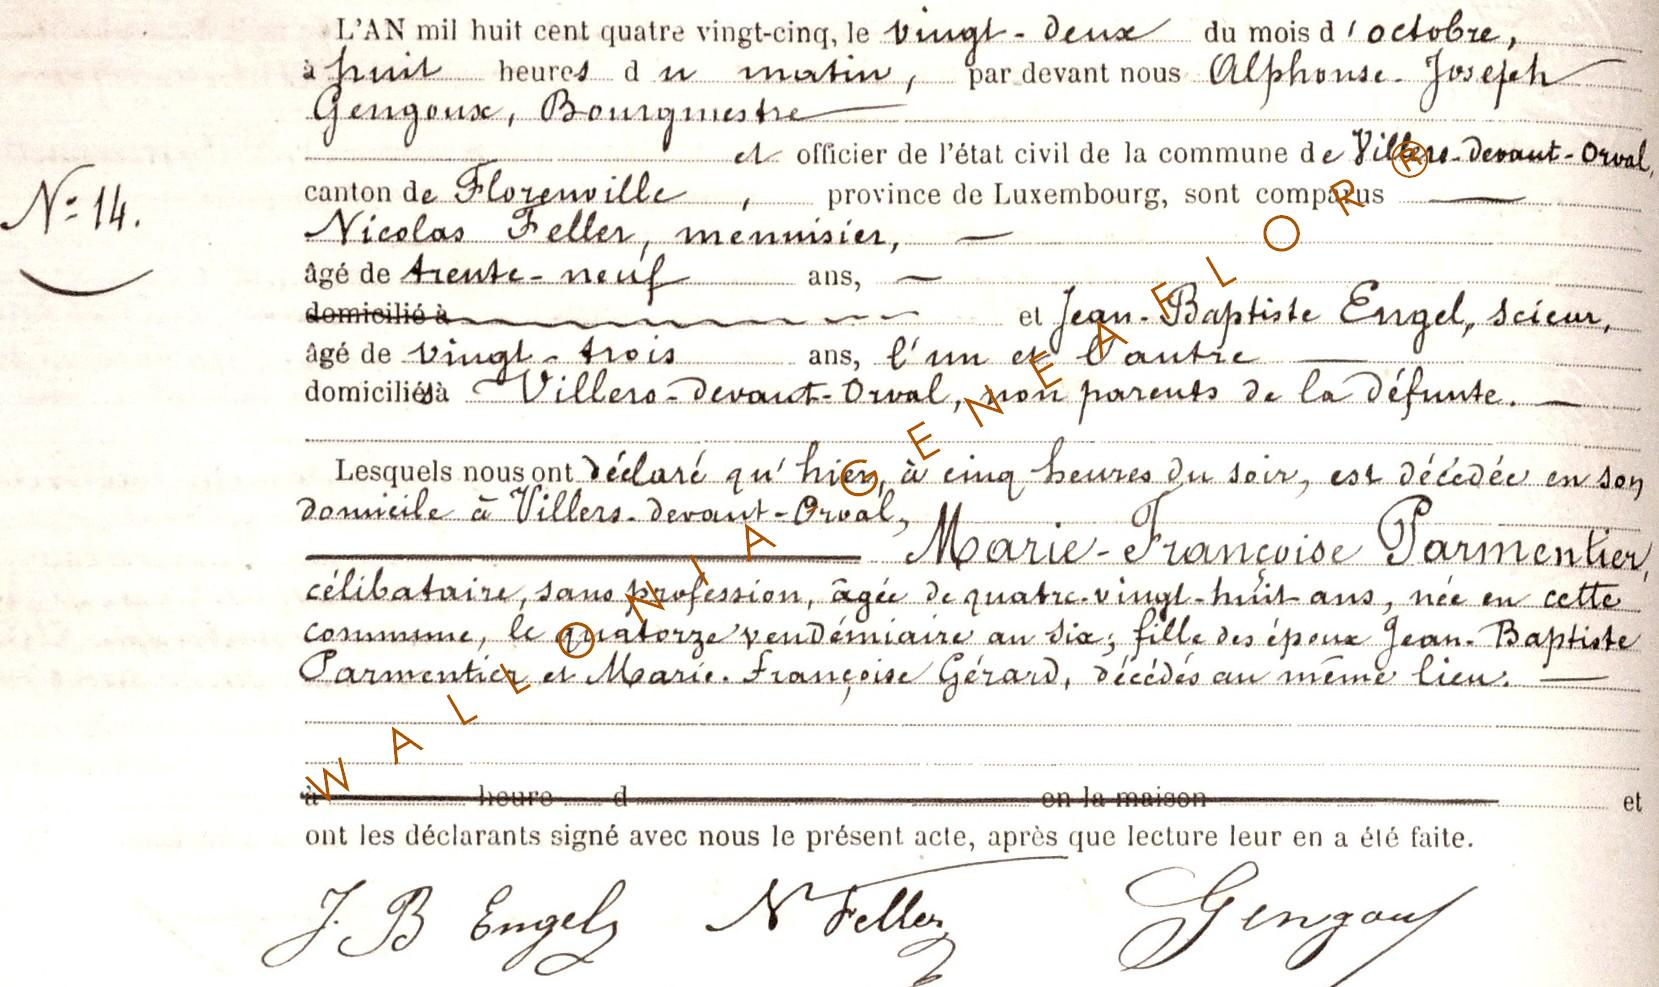 L'AN mil huit cent quatre vingt-cinq, le vingt-deux du mois d'octobre,
à huit heures du matin, par devant nous Alphonse-Joseph
Gengoux, Bourgmestre
et officier de l'état civil de la commune de Villers-devant-Orval,
canton de Florenville, province de Luxembourg, sont comparus
N° 14.
Nicolas Feller, menuisier,
âgé de trente-neuf ans,
domicilié à et Jean-Baptiste Engel, scieur,
âgé de vingt-trois ans, l'un et l'autre
domiciliés à Villers-devant-Orval, non parents de la défunte.
Lesquels nous ont déclaré qu'hier, à cinq heures du soir, est décédée en son
domicile à Villers-devant-Orval,
Marie-Françoise Parmentier,
célibataire, sans profession, âgée de quatre-vingt-huit ans, née en cette
commune, le quatorze vendémiaire an six; fille des époux Jean-Baptiste
Parmentier et Marie-Françoise Gérard, décédés au même lieu.
à heure d en la maison et
ont les déclarants signé avec nous le présent acte, après que lecture leur en a été faite.
J. B Engel N Feller Gengoux
WALLONIA GENEAFLOR ®